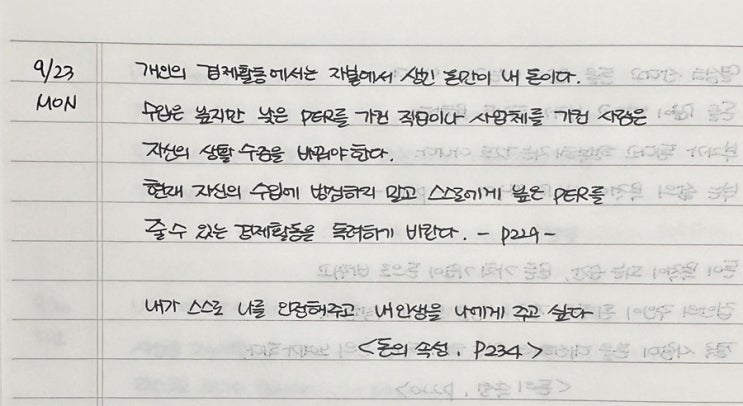 9/23
MON
개인의 경제활동에서는 자본에서 생긴 돈만이 내 돈이다.
수입은 높지만 낮은 PER를 가진 직업이나 사업체를 가진 사람은
자신의 생활 수준을 바꿔야한다.
현재 자신의 수입에 방심하지 말고 스스로에게 높은 PER를
줄 수 있는 경제활동을 독려하기 바란다. - P229 -
내가 스스로 나를 인정해주고 내 인생을 나에게 주고 싶다
<돈의 속성. P234>